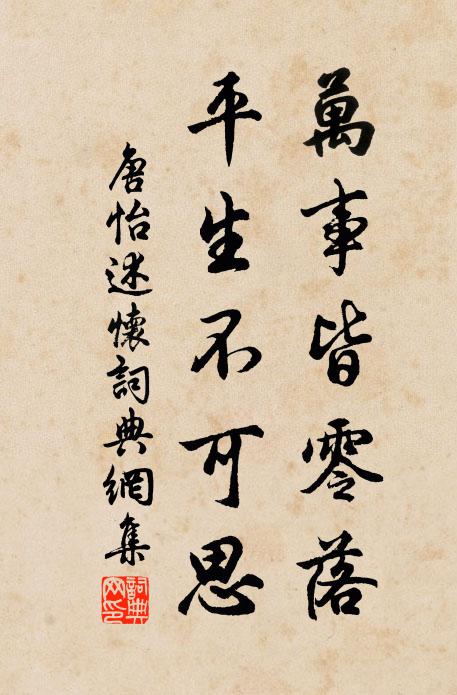 萬事皆零落
平生不可思
唐怡述懷詞典網集
詞典
网印